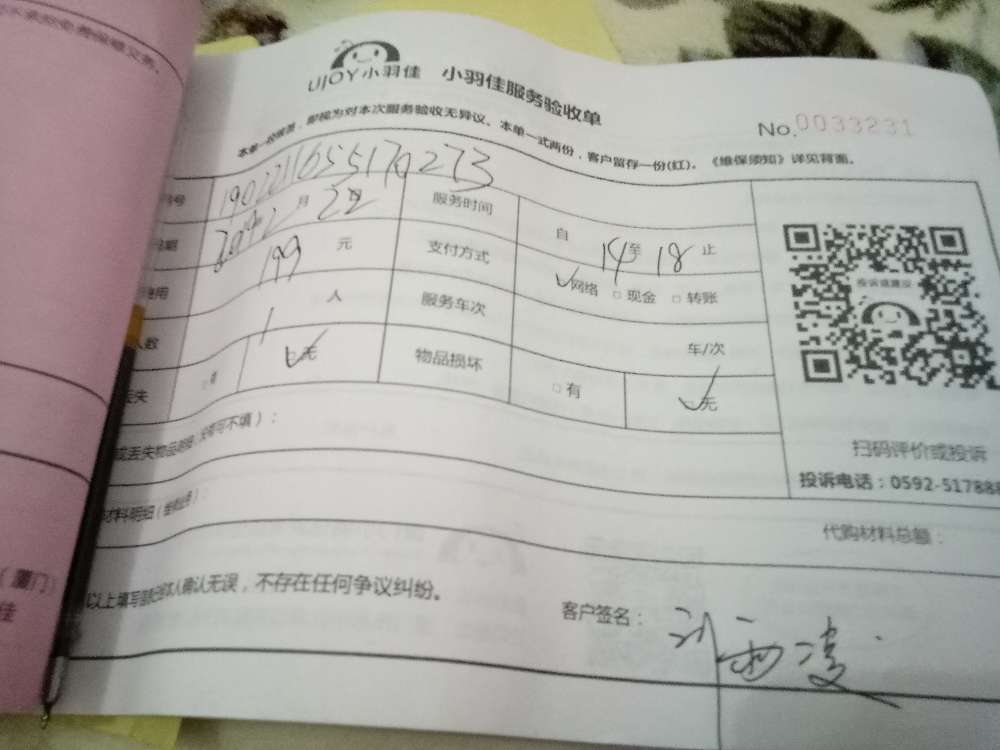 UJOY小羽佳 小羽佳服务验收单
No.0033231
本单一经签署，即视为对本次服务验收无异议。本单一式两份，客户留存一份(红)。《维保须知》详见背面。
号 1902211655170273 服务时间 自 14 至 18 止
期 2019 2 月 22 支付方式 网络 □ 现金 □ 转账
用 199 元 服务车次 车/次
人数 1 人 物品损坏 □ 有 □ 无
丢失 □ 有 □ 无
或丢失物品 没有可不填）：
材料明细（ ）：
代购材料总额：
扫码评价或投诉
投诉电话：0592-517888
投诉或建议
以上填写 本人确认无误，不存在任何争议纠纷。
客户签名：
（厦门）
佳